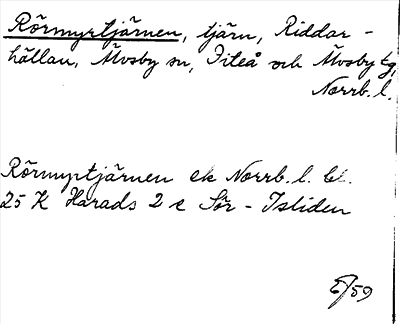 Rörmyrtjärnen, tjärn, Riddar-
hällan, Älvsby sn, Piteå och Älvsby tg,
Norrb. l.
Rörmyrtjärnen ek Norrb. l. bl.
25 K Harads 2 e Sör-Istliden
/59